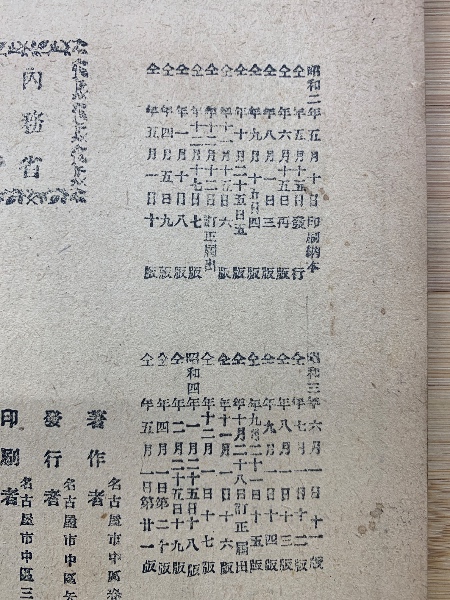 昭和二年五月十日印刷納本
仝年五月十五日發行
仝年六月十五日再版
仝年八月一日三版
仝年九月十五日四版
仝年十月二十五日五版
仝年十二月五日六版
仝年十二月十二日訂正屆出
仝年十二月十七日七版
仝年一月十日八版
仝年四月五日九版
仝年五月一日十版
昭和三年六月一日十一版
仝年七月一日十二版
仝年八月一日十三版
仝年九月一日十四版
仝年九月二十一日十五版
仝年十月二十八日訂正屆出
仝年十一月一日十六版
仝年十二月一日十七版
昭和四年一月二十五日十八版
仝年二月二十五日十九版
仝年四月一日第二十版
仝年五月一日第廿一版
內務省
著作者
名古屋市中區
發行者
名古屋市中區矢
印刷者
名古屋市中區三